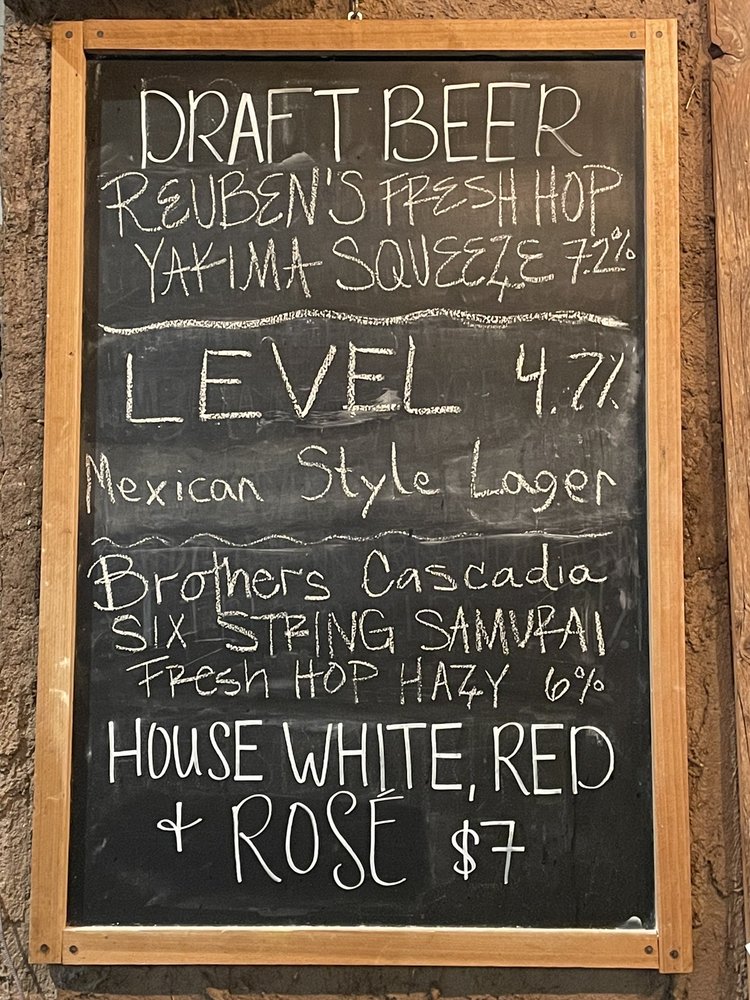 DRAFT BEER
REUBEN'S FRESH HOP
YAKIMA SQUEEZE 7.2%
LEVEL 4.7%
Mexican Style Lager
Brothers Cascadia
SIX STRING SAMURAI
Fresh HOP HAZY 6%
HOUSE WHITE, RED
+ ROSÉ $7